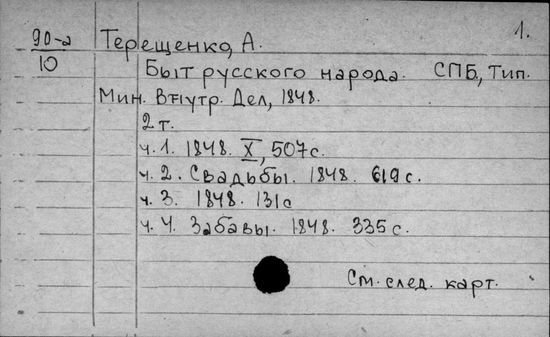 1.
90-а Терещенко, А.
10 Быт русского народа. СПБ, Тип.
Мин. Внутр. Дел, 1848.
2 т.
ч. 1. 1848. X, 507 с.
ч. 2. Свадьбы. 1848. 619 с.
ч. 3. 1848. 131 с
ч. 4. Забавы. 1848. 335 с.
См. след. карт.